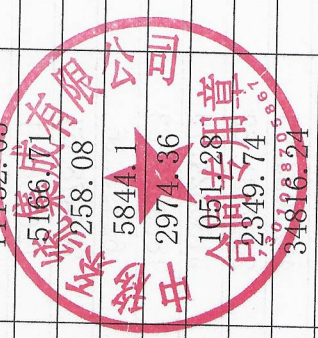 5166.71
258.08
5844.1
2974.36
1051.28
2349.74
34816.24
集成有限公司
合同专用章